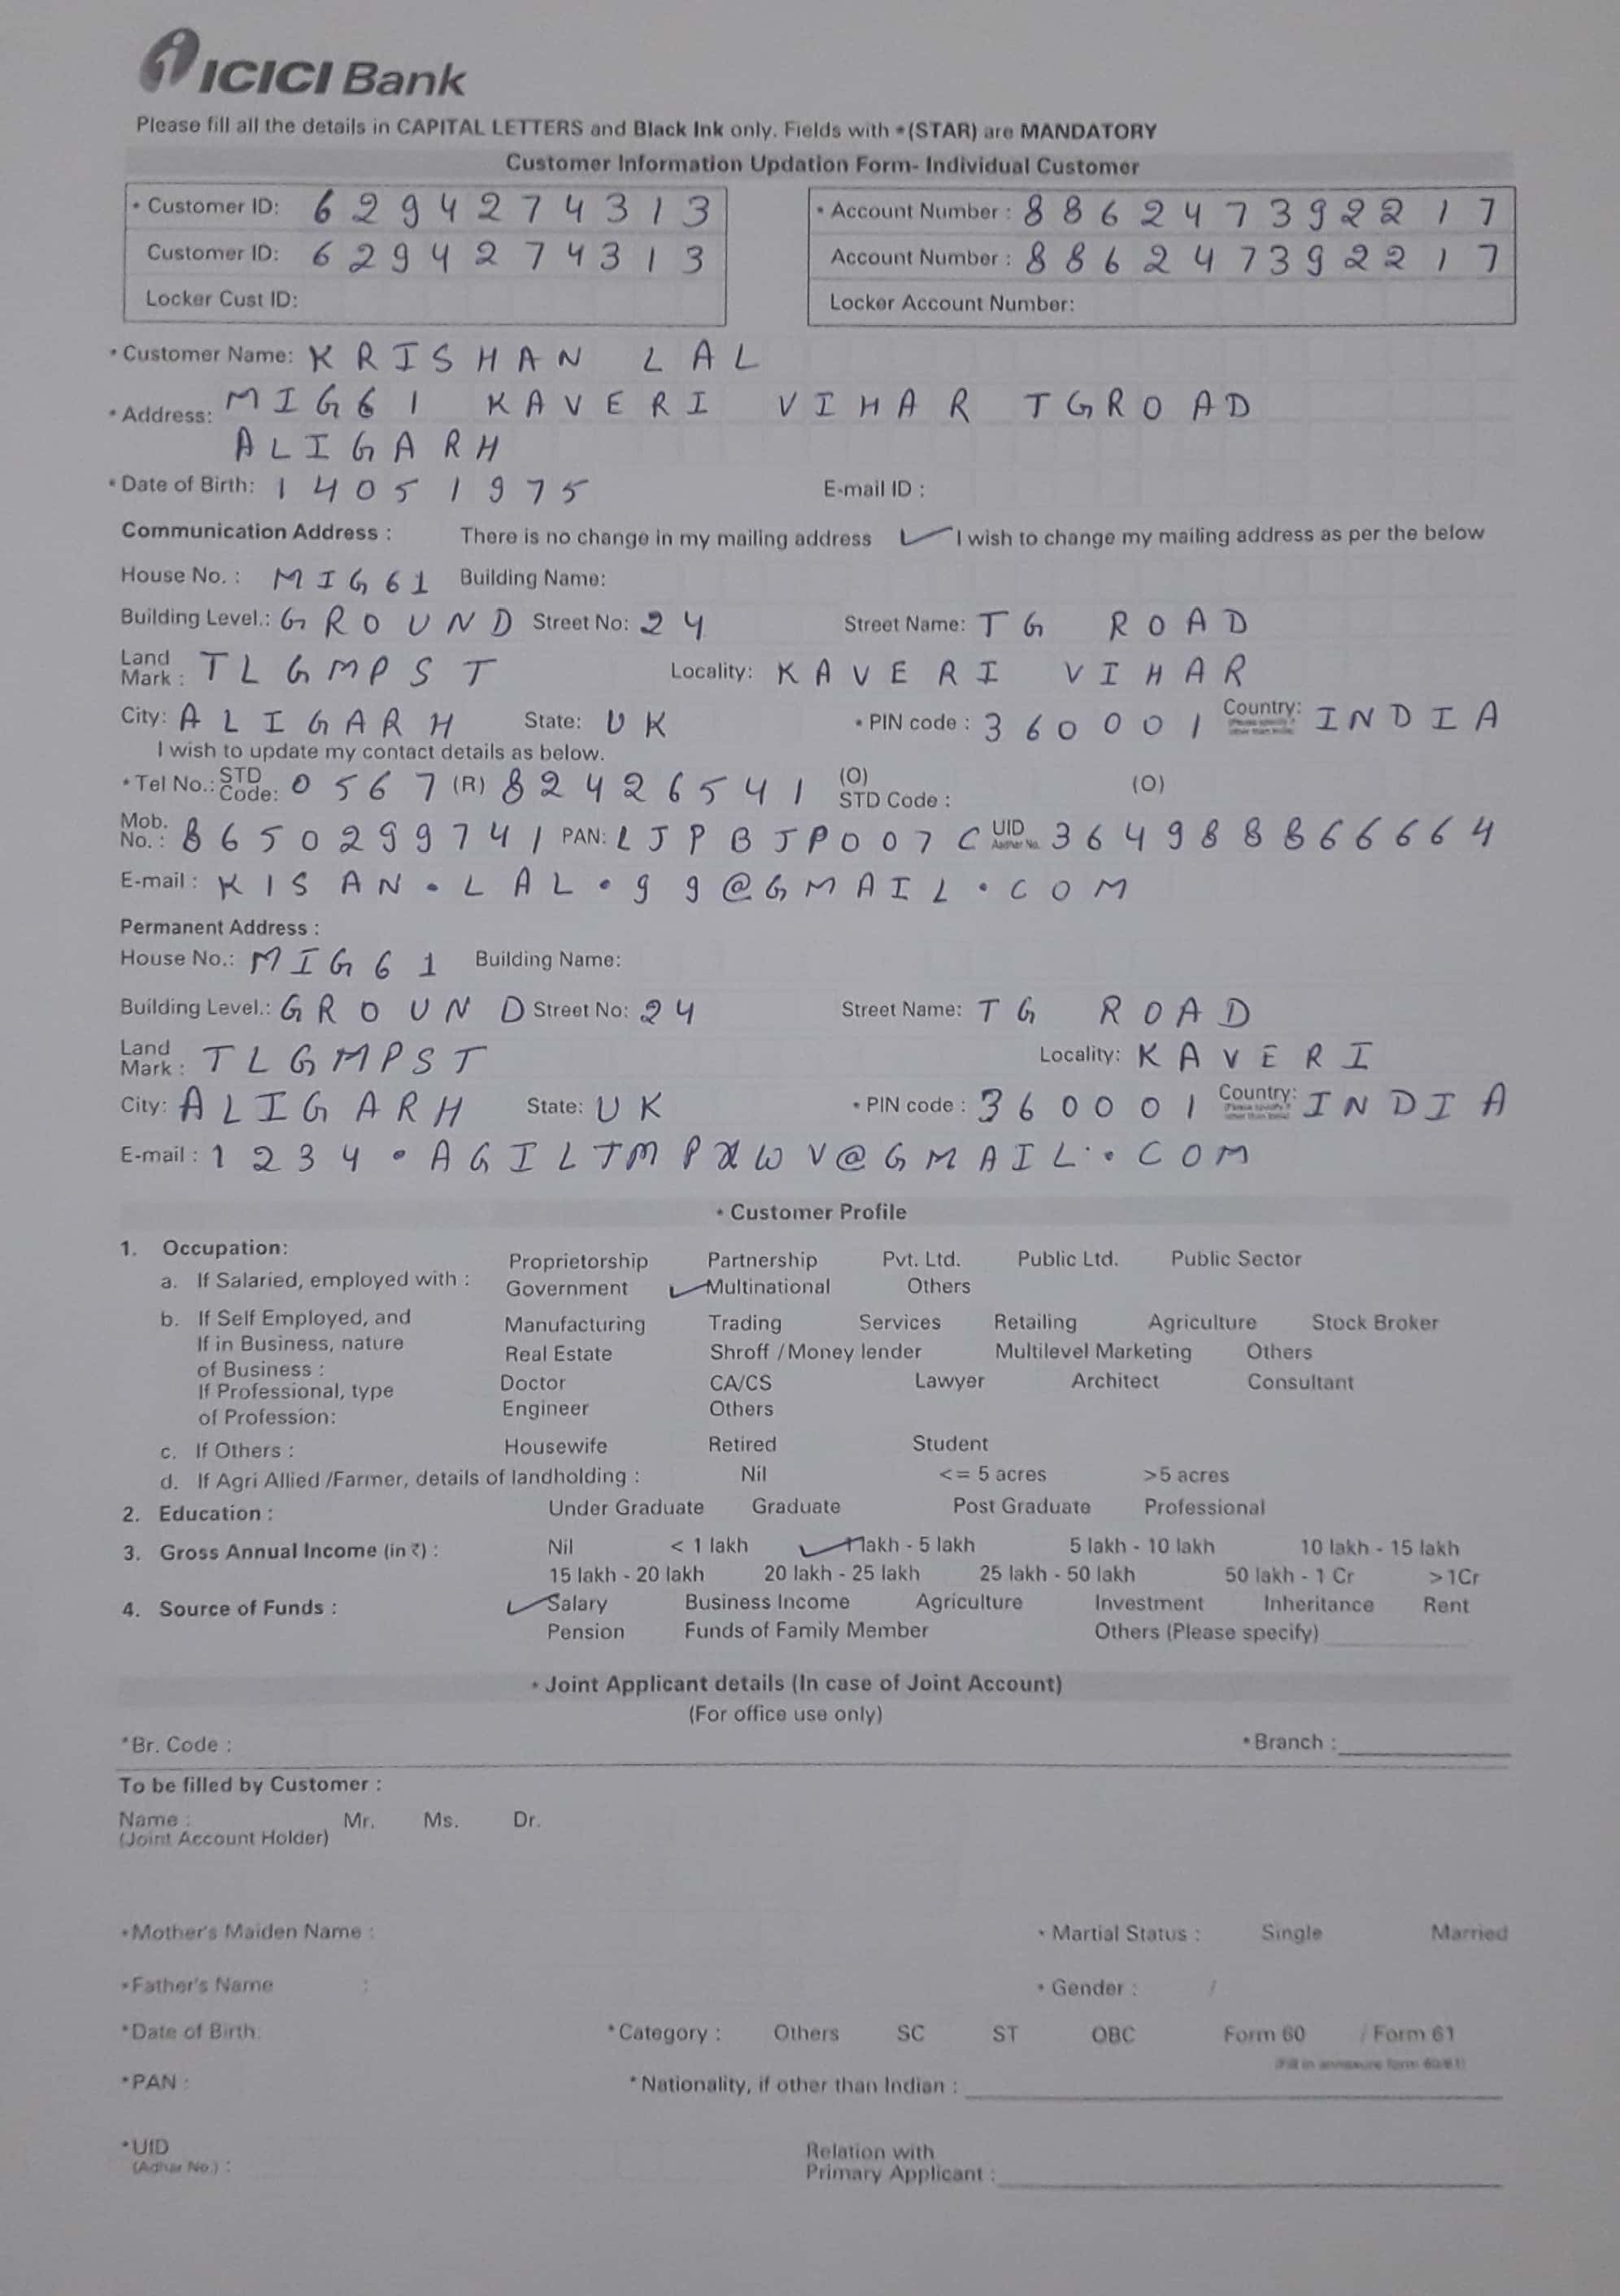 ICICI Bank
Please fill all the details in CAPITAL LETTERS and Black Ink only. Fields with *(STAR) are MANDATORY
Customer Information Updation Form- Individual Customer
* Customer ID: 6294274313 * Account Number : 886247392217
Customer ID: 6294274313 Account Number : 886247392217
Locker Cust ID: Locker Account Number:
* Customer Name: KRISHAN LAL
* Address: MIG61 KAVERI VIHAR TGROAD
ALIGARH
* Date of Birth: 14051975 E-mail ID :
Communication Address : There is no change in my mailing address ✓ I wish to change my mailing address as per the below
House No. : MIG61 Building Name:
Building Level.: GROUND Street No: 24 Street Name: TG ROAD
Land Mark : TLGMPST Locality: KAVERI VIHAR
City: ALIGARH State: UK * PIN code : 360001 Country: INDIA
I wish to update my contact details as below.
* Tel No.: STD Code: 0567 (R) 82426541 (O) STD Code : (O)
Mob. No. : 8650299741 PAN: LJPBJP007C UID Aadhar No. 364988866664
E-mail : KISAN.LAL.99@GMAIL.COM
Permanent Address :
House No.: MIG61 Building Name:
Building Level.: GROUND Street No: 24 Street Name: TG ROAD
Land Mark : TLGMPST Locality: KAVERI
City: ALIGARH State: UK * PIN code : 360001 Country: INDIA
E-mail : 1234.AGILTMPXWV@GMAIL.COM
* Customer Profile
1. Occupation:
Proprietorship Partnership Pvt. Ltd. Public Ltd. Public Sector
a. If Salaried, employed with : Government ✓ Multinational Others
b. If Self Employed, and Manufacturing Trading Services Retailing Agriculture Stock Broker
If in Business, nature Real Estate Shroff /Money lender Multilevel Marketing Others
of Business :
If Professional, type Doctor CA/CS Lawyer Architect Consultant
of Profession: Engineer Others
c. If Others : Housewife Retired Student
d. If Agri Allied /Farmer, details of landholding : Nil <= 5 acres >5 acres
2. Education : Under Graduate Graduate Post Graduate Professional
3. Gross Annual Income (in ₹) : Nil < 1 lakh ✓ 1 lakh - 5 lakh 5 lakh - 10 lakh 10 lakh - 15 lakh
15 lakh - 20 lakh 20 lakh - 25 lakh 25 lakh - 50 lakh 50 lakh - 1 Cr >1Cr
4. Source of Funds : ✓ Salary Business Income Agriculture Investment Inheritance Rent
Pension Funds of Family Member Others (Please specify)
* Joint Applicant details (In case of Joint Account)
(For office use only)
*Br. Code : * Branch :
To be filled by Customer :
Name : Mr. Ms. Dr.
(Joint Account Holder)
*Mother's Maiden Name : * Martial Status : Single Married
*Father's Name : * Gender : /
*Date of Birth: *Category : Others SC ST OBC Form 60 / Form 61
(Fill in annexure form 60/61)
*PAN : *Nationality, if other than Indian :
*UID Relation with
(Adhar No.) : Primary Applicant :